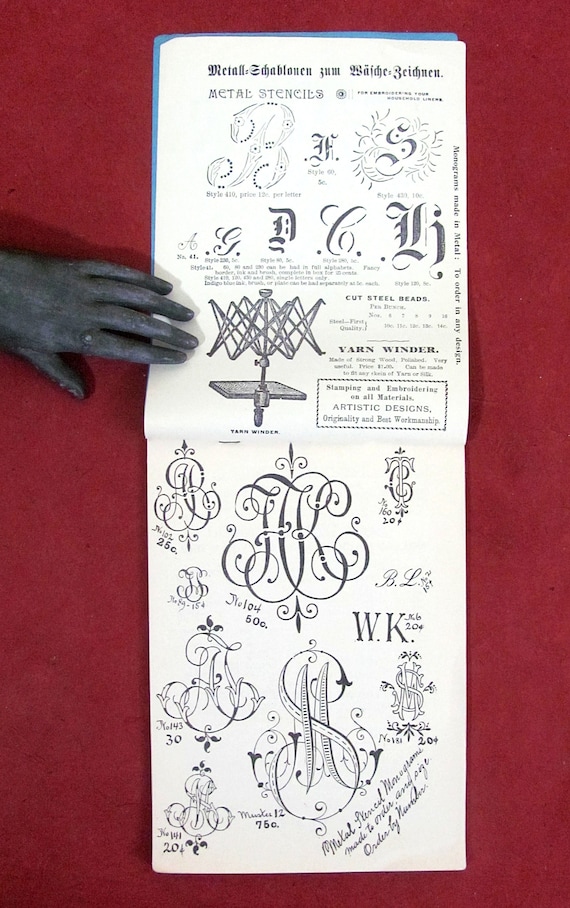 Metall-Schablonen zum Wäsche-Zeichnen.
METAL STENCILS FOR EMBROIDERING YOUR
HOUSEHOLD LINENS.
B F. S
Style 60,
5c.
Style 410, price 12c. per letter
Style 430, 10c.
Monograms made in Metal: To order in any design.
A G. D C. H
No. 41. Style 230, 5c. Style 80, 5c. Style 280, 5c.
Style 41. 60, 80 and 280 can be had in full alphabets. Fancy
border, ink and brush, complete in box for 25 cents.
single letters only.
Indigo blue ink, brush, or plate can be had separately at 5c. each. Style 120, 8c.
CUT STEEL BEADS.
PER BUNCH.
Nos. 6 7 8 9 10
Steel—First
Quality. 10c. 11c. 12c. 13c. 14c.
YARN WINDER.
Made of Strong Wood, Polished. Very
useful. Price $1.00. Can be made
to fit any skein of Yarn or Silk.
Stamping and Embroidering
on all Materials.
ARTISTIC DESIGNS,
Originality and Best Workmanship.
YARN WINDER.
No 102
25c.
No 104
50c.
No
160
20¢
No 89-15¢
B.L.
W.K. No 6
20¢
No 143
30
No 181 20¢
No 141
20¢
Muster 12
75c.
Metal Stencil Monograms
made to order any size
Order by Number.